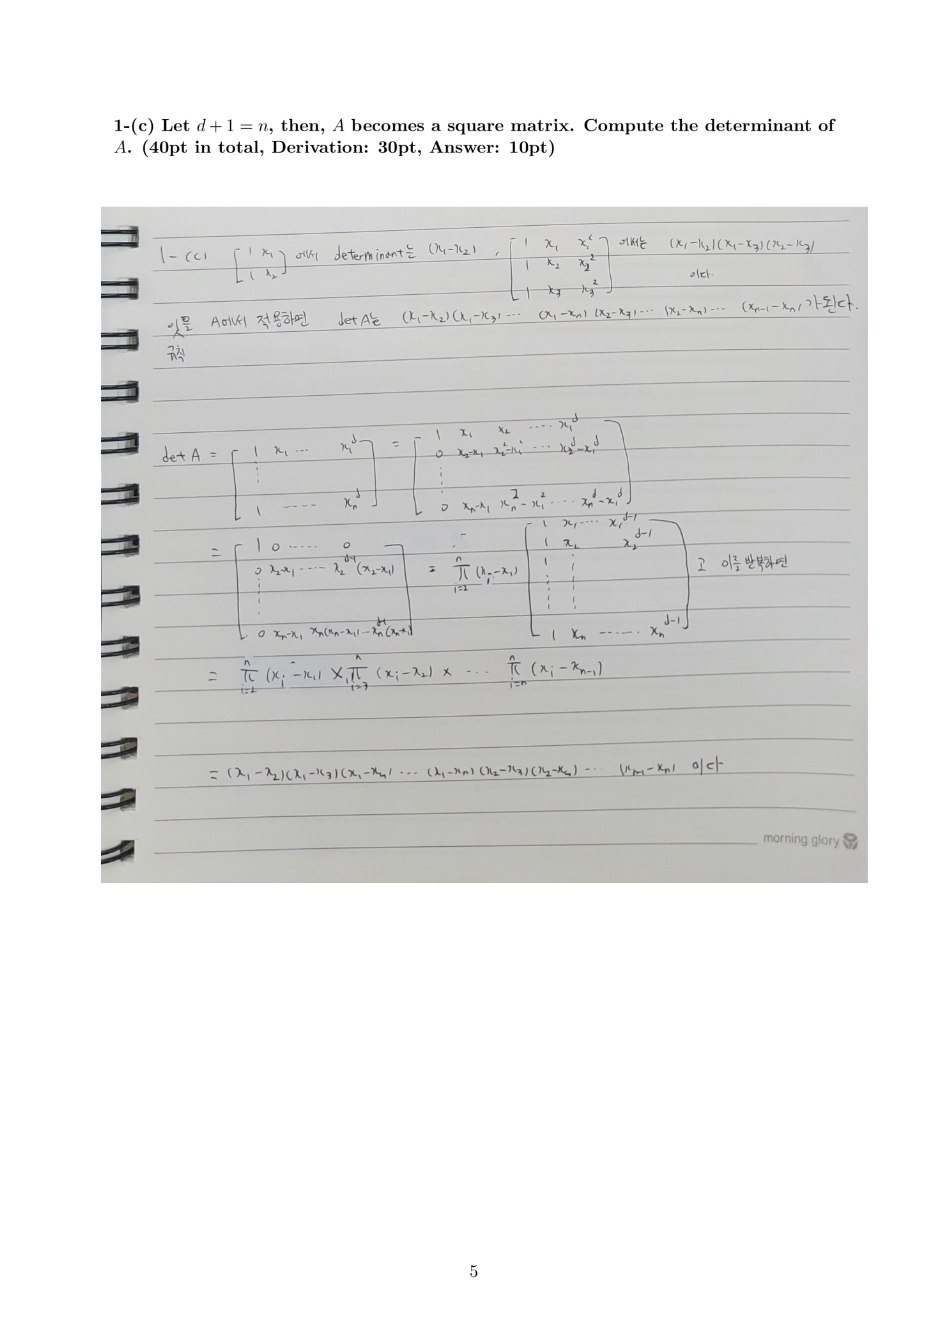 1-(c) Let d + 1 = n, then, A becomes a square matrix. Compute the determinant of
A. (40pt in total, Derivation: 30pt, Answer: 10pt)
1-(c) [1 x₁ / 1 x₂] 에서 determinant는 (x₁-x₂), [1 x₁ x₁² / 1 x₂ x₂² / 1 x₃ x₃²] 에서는 (x₁-x₂)(x₁-x₃)(x₂-x₃)
이다.
이를 A에서 적용하면 det A는 (x₁-x₂)(x₁-x₃)··· (x₁-xₙ)(x₂-x₃)··· (x₂-xₙ)··· (xₙ₋₁-xₙ)가 된다.
규칙
det A = [1 x₁ ··· x₁ᵈ / ⋮ / 1 ---- xₙᵈ] = [1 x₁ x₂ ···· x₁ᵈ / 0 x₂-x₁ x₂²-x₁² ··· x₂ᵈ-x₁ᵈ / ⋮ / 0 xₙ-x₁ xₙ²-x₁² ··· xₙᵈ-x₁ᵈ]
= [1 0 ····· 0 / 0 x₂-x₁ ···· x₂ᵈ⁻¹(x₂-x₁) / ⋮ / 0 xₙ-x₁ xₙ(xₙ-x₁) ··· xₙᵈ⁻¹(xₙ-x₁)] = π ⁿ ᵢ₌₂ (xᵢ-x₁) [1 x₁ ···· x₁ᵈ⁻¹ / 1 x₂ x₂ᵈ⁻¹ / 1 ⋮ / ⋮ ⋮ / 1 xₙ ------ xₙᵈ⁻¹] 고 이를 반복하면
= π ⁿ ᵢ₌₂ (xᵢ-x₁) × π ⁿ ᵢ₌₃ (xᵢ-x₂) × ··· π ⁿ ᵢ₌ₙ (xᵢ-xₙ₋₁)
= (x₁-x₂)(x₁-x₃)(x₁-x₄) ··· (x₁-xₙ)(x₂-x₃)(x₂-x₄) ··· (xₙ₋₁-xₙ) 이다
morning glory
5